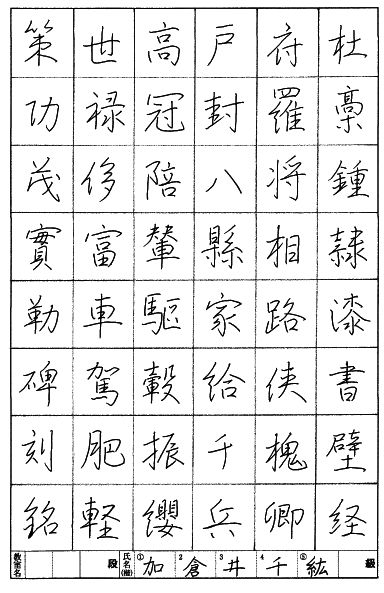 杜稾鍾隷漆書壁経
府羅将相路侠槐卿
戸封八縣家給千兵
高冠陪輦驅轂振纓
世禄侈富車駕肥軽
策功茂實勒碑刻銘
級
氏名(権) ①加 2倉 3井 4千 ⑤紘
段
教室名